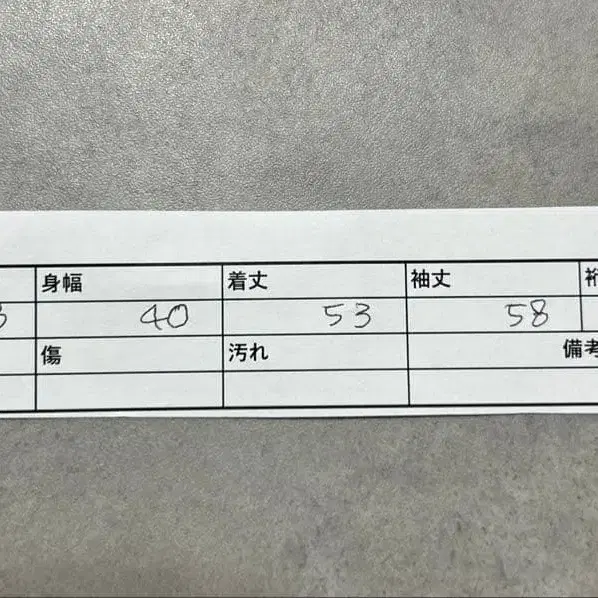 身幅 着丈 袖丈 裄
3 40 53 58
傷 汚れ 備考